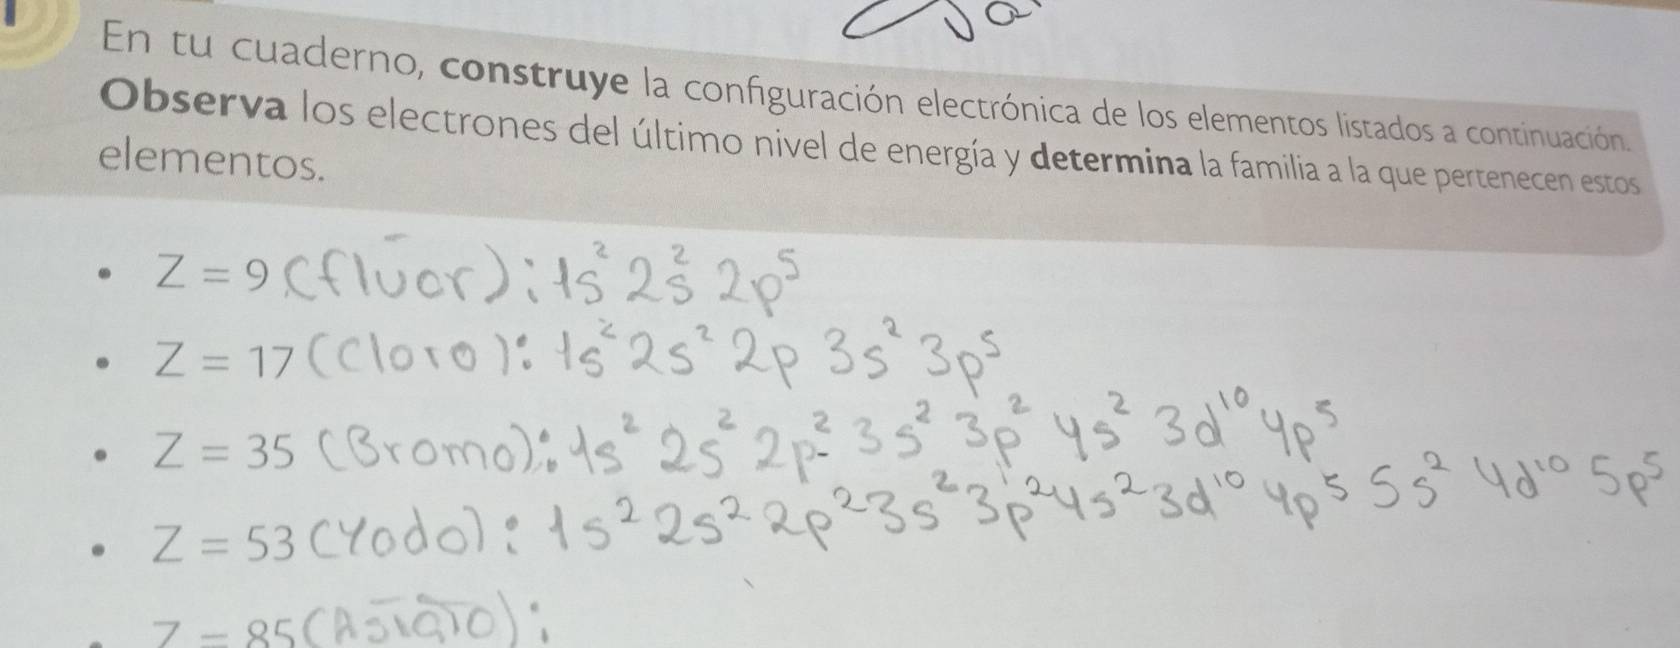 En tu cuaderno, construye la configuración electrónica de los elementos listados a continuación.
Observa los electrones del último nivel de energía y determina la familia a la que pertenecen estos
elementos.
• Z = 9 (flūor): 1s² 2s² 2p⁵
• Z = 17 (Cloro): 1s² 2s² 2p 3s² 3p⁵
• Z = 35 (Bromo): 1s² 2s² 2p² 3s² 3p² 4s² 3d¹⁰ 4p⁵
• Z = 53 (Yodo): 1s² 2s² 2p² 3s² 3p² 4s² 3d¹⁰ 4p⁵ 5s² 4d¹⁰ 5p⁵
• Z = 85 (Astato):